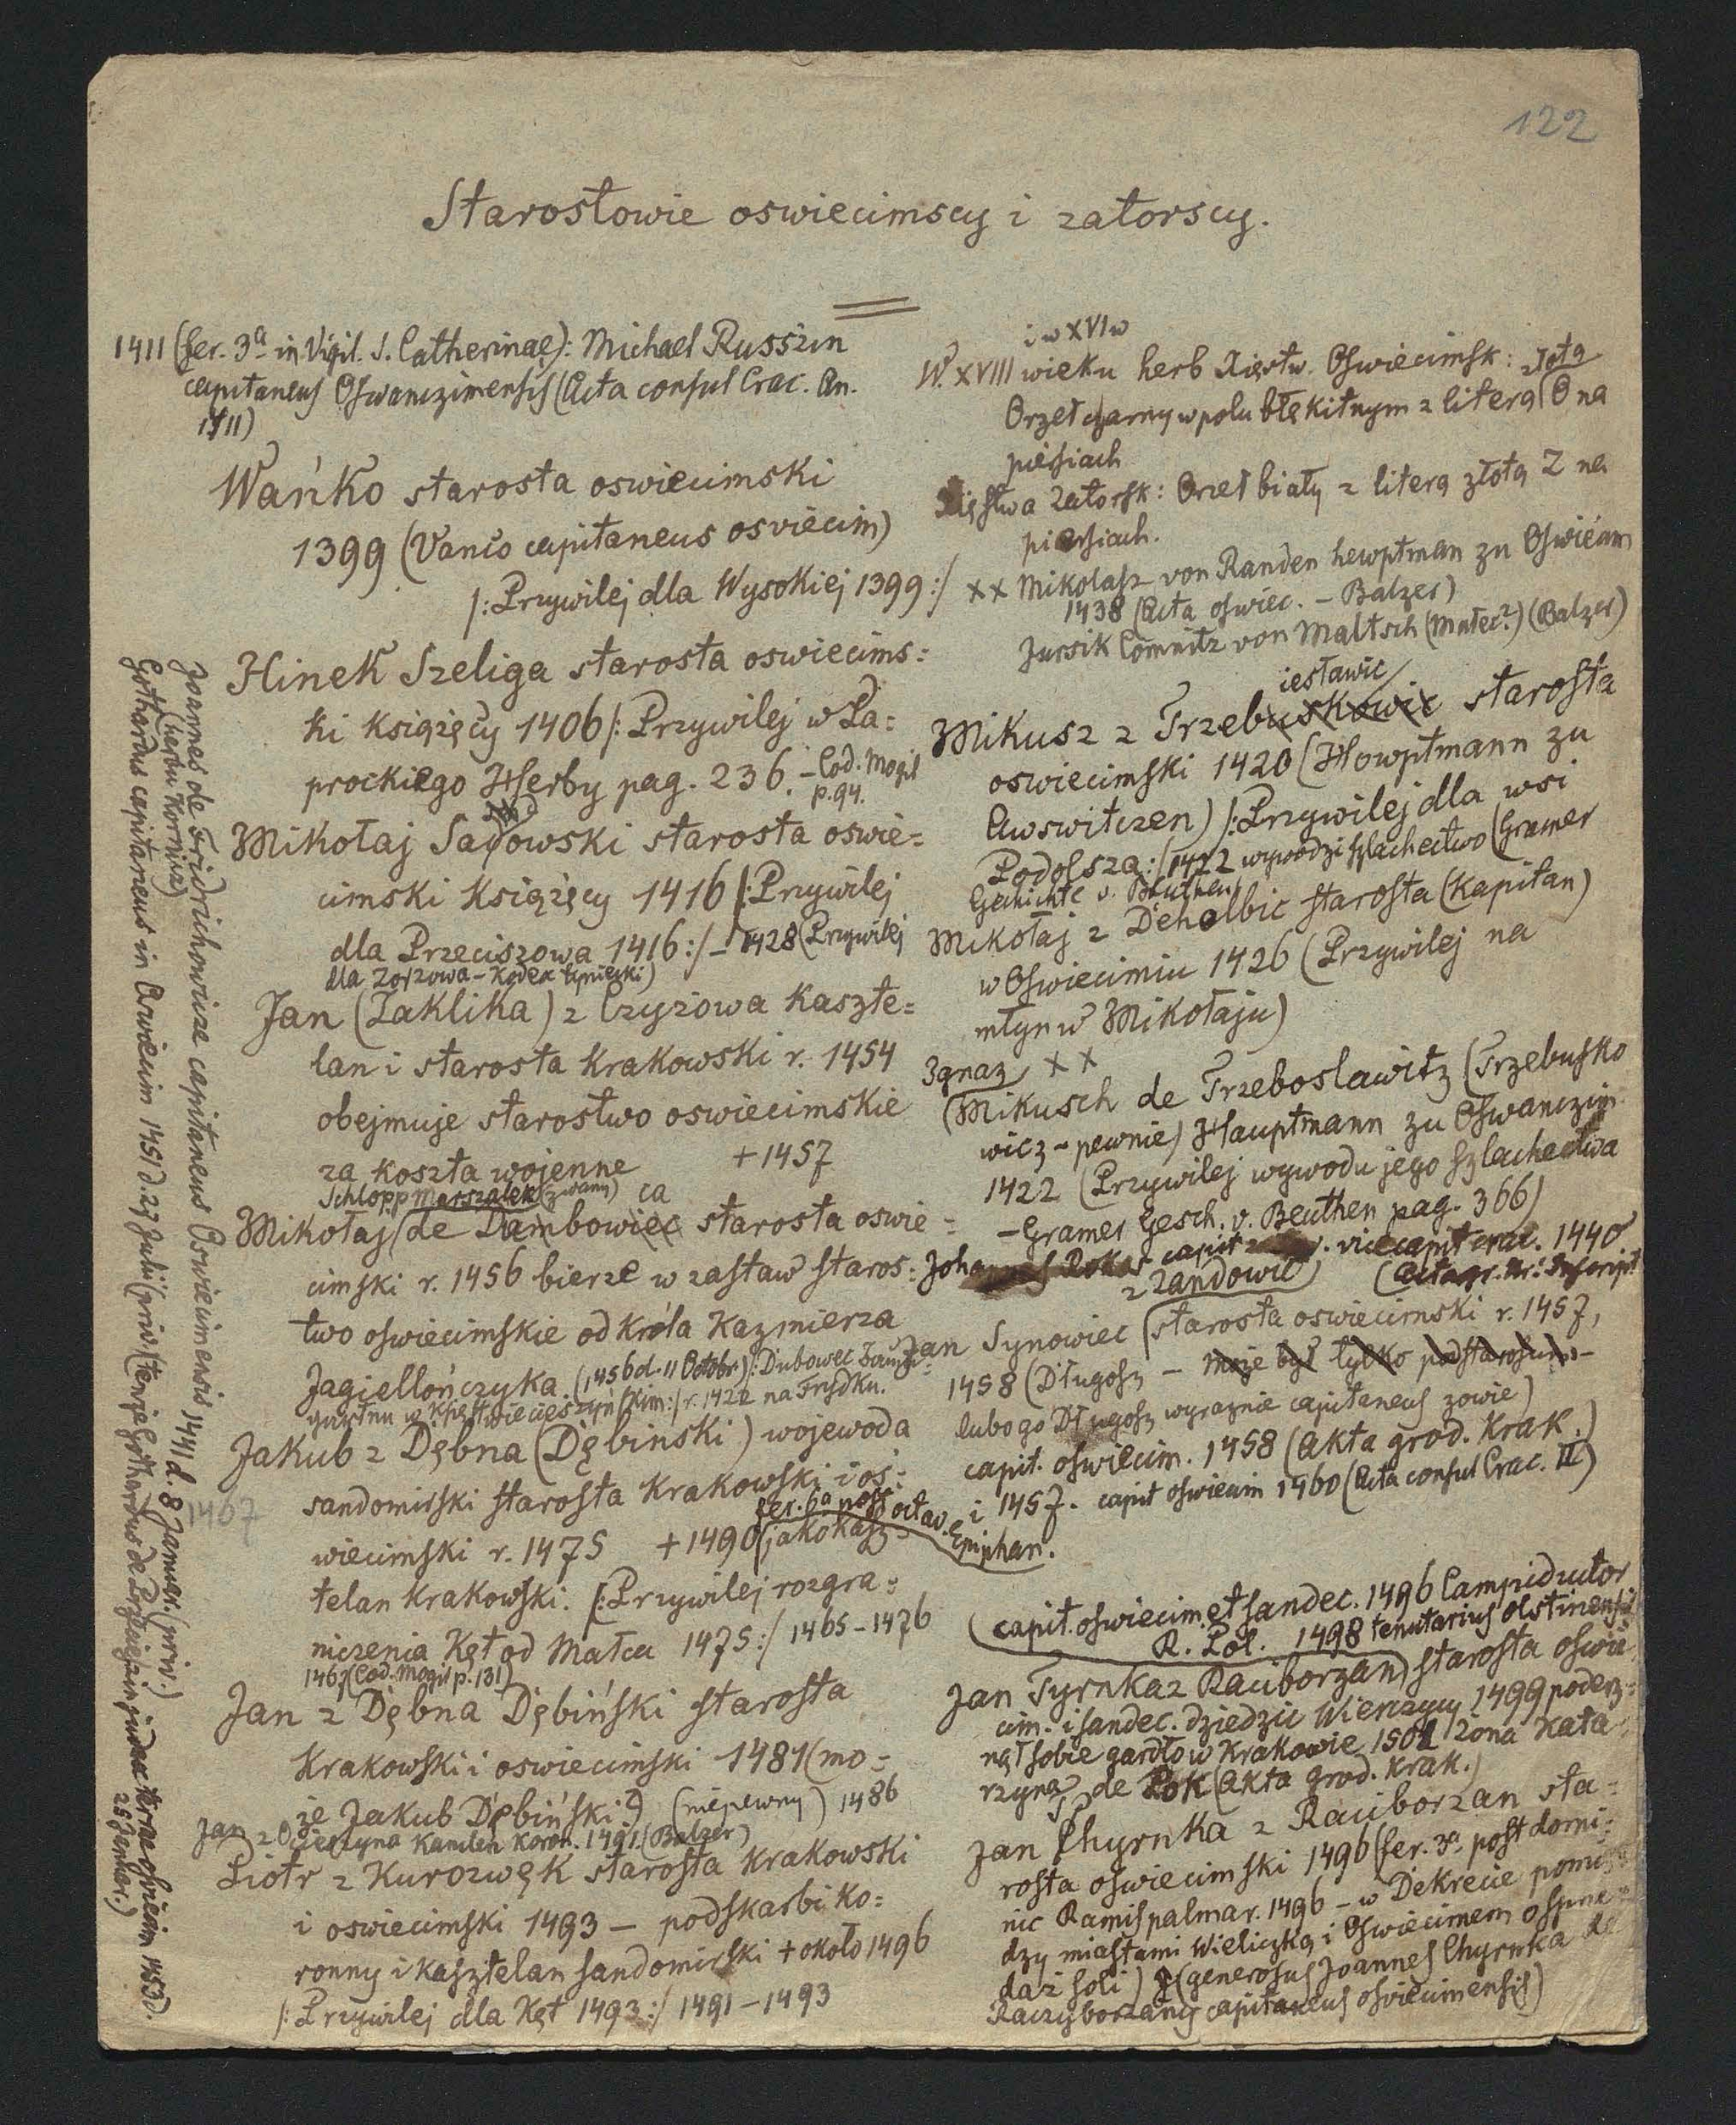 122
Starostowie oswiecimscy i zatorscy.
1411 (fer. 3ª in Vigil. S. Catherinae): Michael Russzin
capitaneus Oswanczimensis (Acta consul Crac. An.
1411)
Wańko starosta oswiecimski
1399 (Vanco capitaneus osviecim)
/:Przywilej dla Wysokiej 1399:/
Hinek Szeliga starosta oswiecims:
ki książęcy 1406 /:Przywilej w Pa:
prockiego Herby pag. 236. – Cod. Mogil
p. 94.
Mikołaj Sadowski starosta oswie:
cimski książęcy 1416 /:Przywilej
dla Przeciszowa 1416:/ – 1428 (Przywilej
dla Zorzowa – Kodex tyniecki)
Jan (Zaklika) z Czyzowa kaszte:
lan i starosta krakowski r. 1454
obejmuje starostwo oswiecimskie
za koszta wojenne +1457
Schlopp Marszalek (zwany) ca
Mikołaj (de Dambowiec starosta oswie:
cimski r. 1456 bierze w zastaw staros:
two oswiecimskie od króla Kazmierza
Jagiellończyka. (1456 d. 11 Octobr.) /:Dubowec
w Księstwie cieszyńskim:/ r. 1422 na Frydku.
Jakub z Dębna (Dębinski) wojewoda
sandomirski starosta krakowski i oś:
fer. 6ª post octav. Epiphan.
wiecimski r. 1475 +1490 (jako kasz:
telan krakowski. /:Przywilej rozgra:
niczenia Kęt od Malca 1475:/ 1465–1476
1467 (Cod. Mogil p. 131)
Jan z Dębna Dębiński starosta
krakowski i oswiecimski 1481 (mo:
że Jakub Dębiński?) (niepewny) 1486
Jan z Kamień koron. 1491. (Balzer)
Piotr z Kurozwęk starosta krakowski
i oswiecimski 1493 – podskarbi ko:
ronny i kasztelan sandomirski + około 1496
/:Przywilej dla Kęt 1493:/ 1491–1493
Joannes de Fridrichowicze capitaneus Oswiecimensis 1441 d. 8 Januar. (priv.)
(herbu Kornicz)
Gothardus capitaneus in Oswiecim 1451 d. 27 Julii (priv.) (tenże Gothardus de judex terrae oswiecim 1453 d.
25 Januar.)
1467
i w XVI w
W. XVIII wieku herb Xięstw. Oswiecimsk: złotą
Orzeł czarny w polu błękitnym z literą O na
piersiach
Xięstwa Zatorsk: Orzeł biały z literą złotą Z na
piersiach.
xx Mikolasz von Randen hewptman zu Oswiecim
1438 (Acta oswiec. – Balzer)
Jursik Comnitz von Maltsch (Malec?) (Balzer)
iesławic
Mikusz z Trzebuskowic starosta
oswiecimski 1420 (Howptmann zu
Awswitczen) /:Przywilej dla wsi
Podolsza:/ 1422 wywodzi szlachectwo (Gramer
Gechichte v. Beuthen)
Mikołaj z Denolbic starosta (Kapitan)
w Oswiecimiu 1426 (Przywilej na
młyn w Mikołaju)
Ignaz xx
(Mikusch de Trzeboslawitz (Trzebusko
wicz – pewnie) Hauptmann zu Oswanczim
1422 (Przywilej wywodu jego szlachectwa
– Gramer Gesch. v. Beuthen pag. 366)
Johannes Rokos capit vicecapit crac. 1440
(Acta gr. Kr: Inscript
z Zandowic
Jan Synowiec starosta oswiecimski r. 1457,
1458 (Długosz – może był tylko podstarostą –
lubo go Długosz wyraznie capitaneus zowie)
capit. oswiecim. 1458 (Akta grod. Krak.)
i 1457. capit oswiecim 1460 (Acta consul Crac. II)
(capit. oswiecim. et sandec. 1496 Campiductor
R. Pol. 1498 tenutarius olstinensis
Jan Tyrnka z Raciborzan) starosta oswie
cim. i sandec. dziedzic Wierzycy 1499 poderz:
nął sobie gardło w Krakowie 1501 żona Kata:
rzyna de Rok (Akta grod. Krak.)
Jan Chyrnka z Raciborzan sta:
rosta oswiecimski 1496 (fer. 3ª post domi:
nic Ramispalmar. 1496 – w Dekrecie pomię
dzy miastami Wieliczką i Oswiecimem o sprze:
daż soli) (generosus Joannes Chyrnka de
Raczyborzany capitaneus osviecimensis)